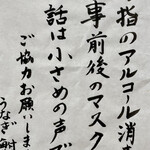 指のアルコール消
事前後のマスク
話は小さめの声で
ご協力お願いしま
うなぎ